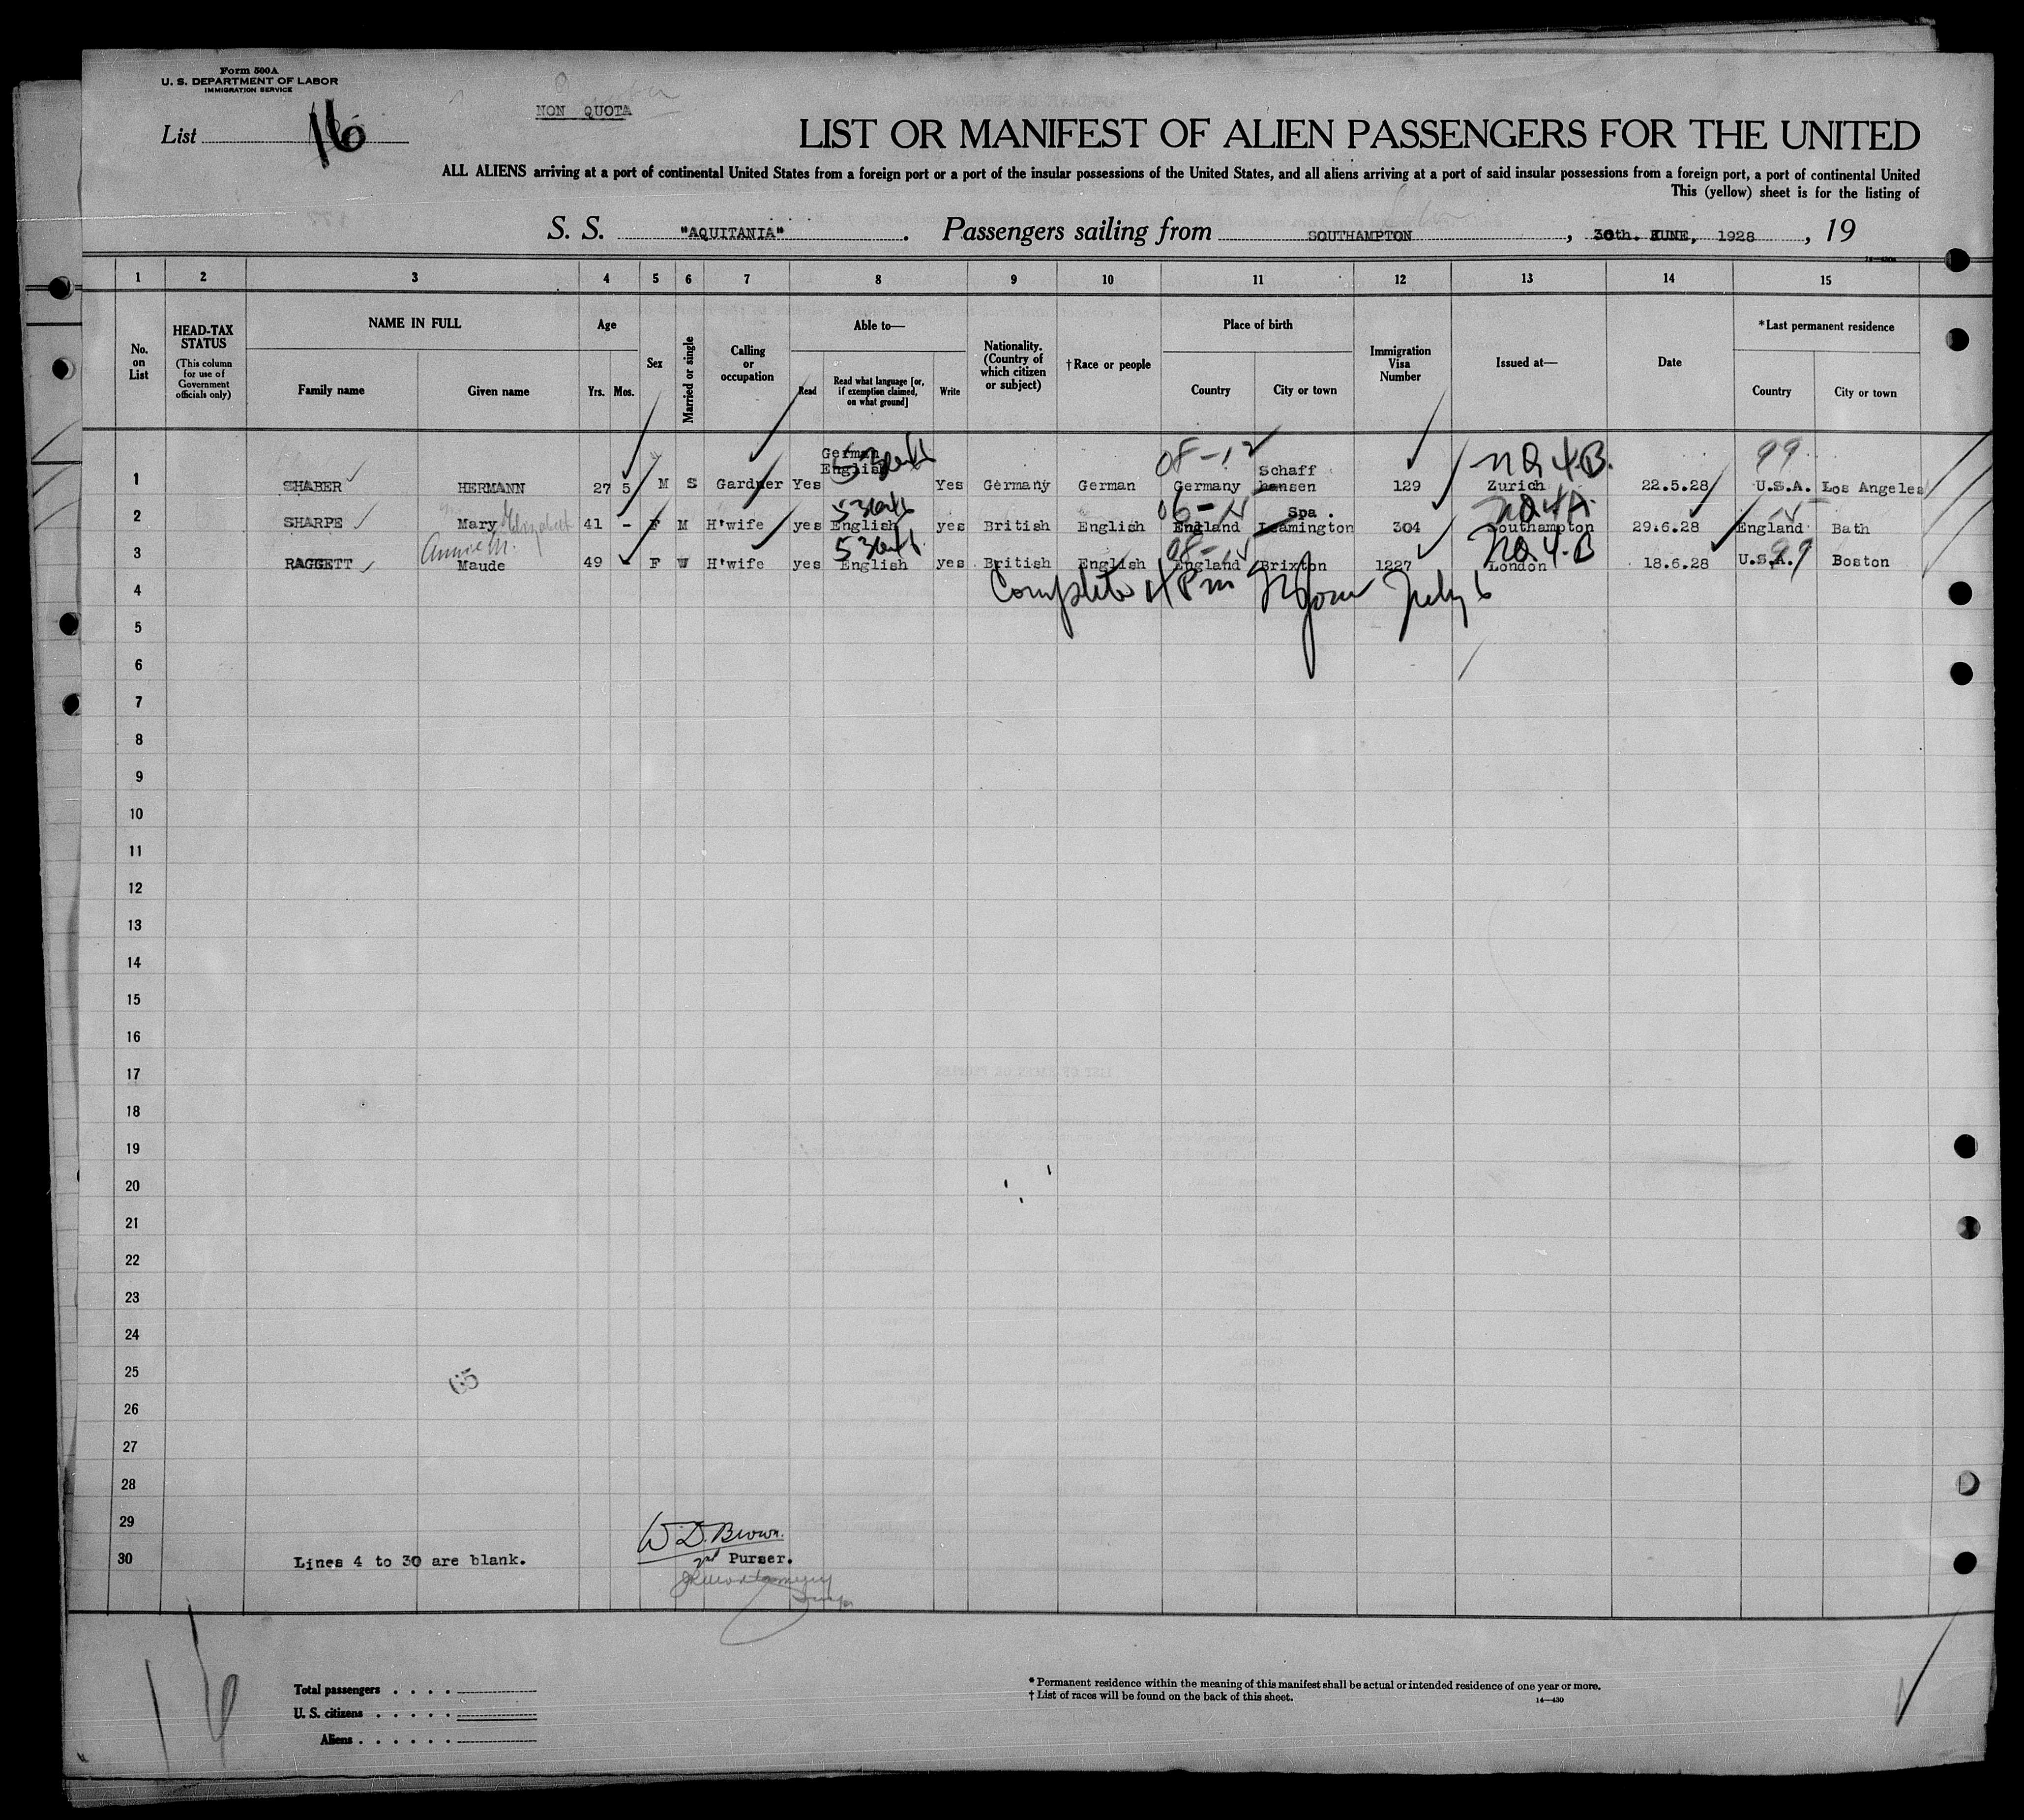 Form 500A
U. S. DEPARTMENT OF LABOR
IMMIGRATION SERVICE
NON QUOTA
List 16
LIST OR MANIFEST OF ALIEN PASSENGERS FOR THE UNITED
ALL ALIENS arriving at a port of continental United States from a foreign port or a port of the insular possessions of the United States, and all aliens arriving at a port of said insular possessions from a foreign port, a port of continental United
This (yellow) sheet is for the listing of
S. S. "AQUITANIA". Passengers sailing from SOUTHAMPTON, 30th. JUNE, 1928, 19
1 2 3 4 5 6 7 8 9 10 11 12 13 14 15
No. on List
HEAD-TAX STATUS
(This column for use of Government officials only)
NAME IN FULL
Family name Given name
Age
Yrs. Mos.
Sex
Married or single
Calling or occupation
Able to—
Read
Read what language [or, if exemption claimed, on what ground]
Write
Nationality. (Country of which citizen or subject)
†Race or people
Place of birth
Country City or town
Immigration Visa Number
Issued at—
Date
*Last permanent residence
Country City or town
German 08-12 Schaff NQ 4.B. 99
1 SHABER HERMANN 27 5 M S Gardner Yes English Yes Germany German Germany hausen 129 Zurich 22.5.28 U.S.A. Los Angeles
06- Spa. NQ 4A
2 SHARPE Mary Elizabeth 41 - F M H'wife yes English yes British English England Leamington 304 Southampton 29.6.28 England Bath
Annie M. 08- NQ 4-B 99
3 RAGGETT Maude 49 - F W H'wife yes English yes British English England Brixton 1227 London 18.6.28 U.S.A. Boston
4 Complete 4 Pm July 6
5
6
7
8
9
10
11
12
13
14
15
16
17
18
19
20
21
22
23
24
25
65
26
27
28
29
W.D. Brown.
30 Lines 4 to 30 are blank. 2nd Purser.
16
Total passengers
U. S. citizens
Aliens
* Permanent residence within the meaning of this manifest shall be actual or intended residence of one year or more.
† List of races will be found on the back of this sheet.
14—430